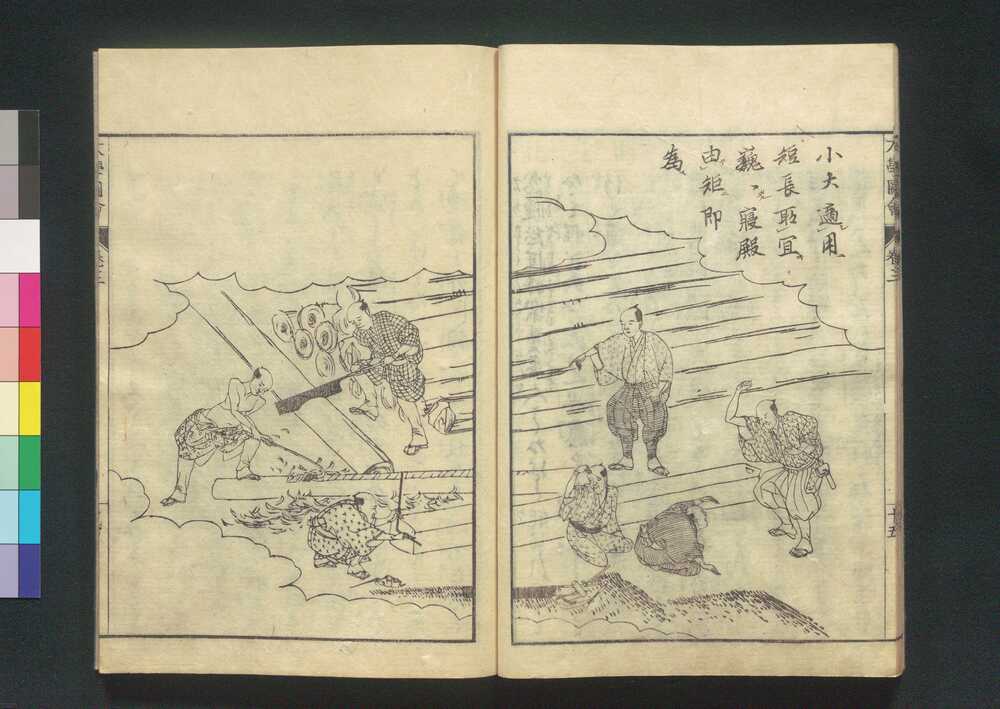 小大適用
短長取宜
巍〻寢殿
由矩即
為
大學圖會
卷三
十五
大學圖會
卷三